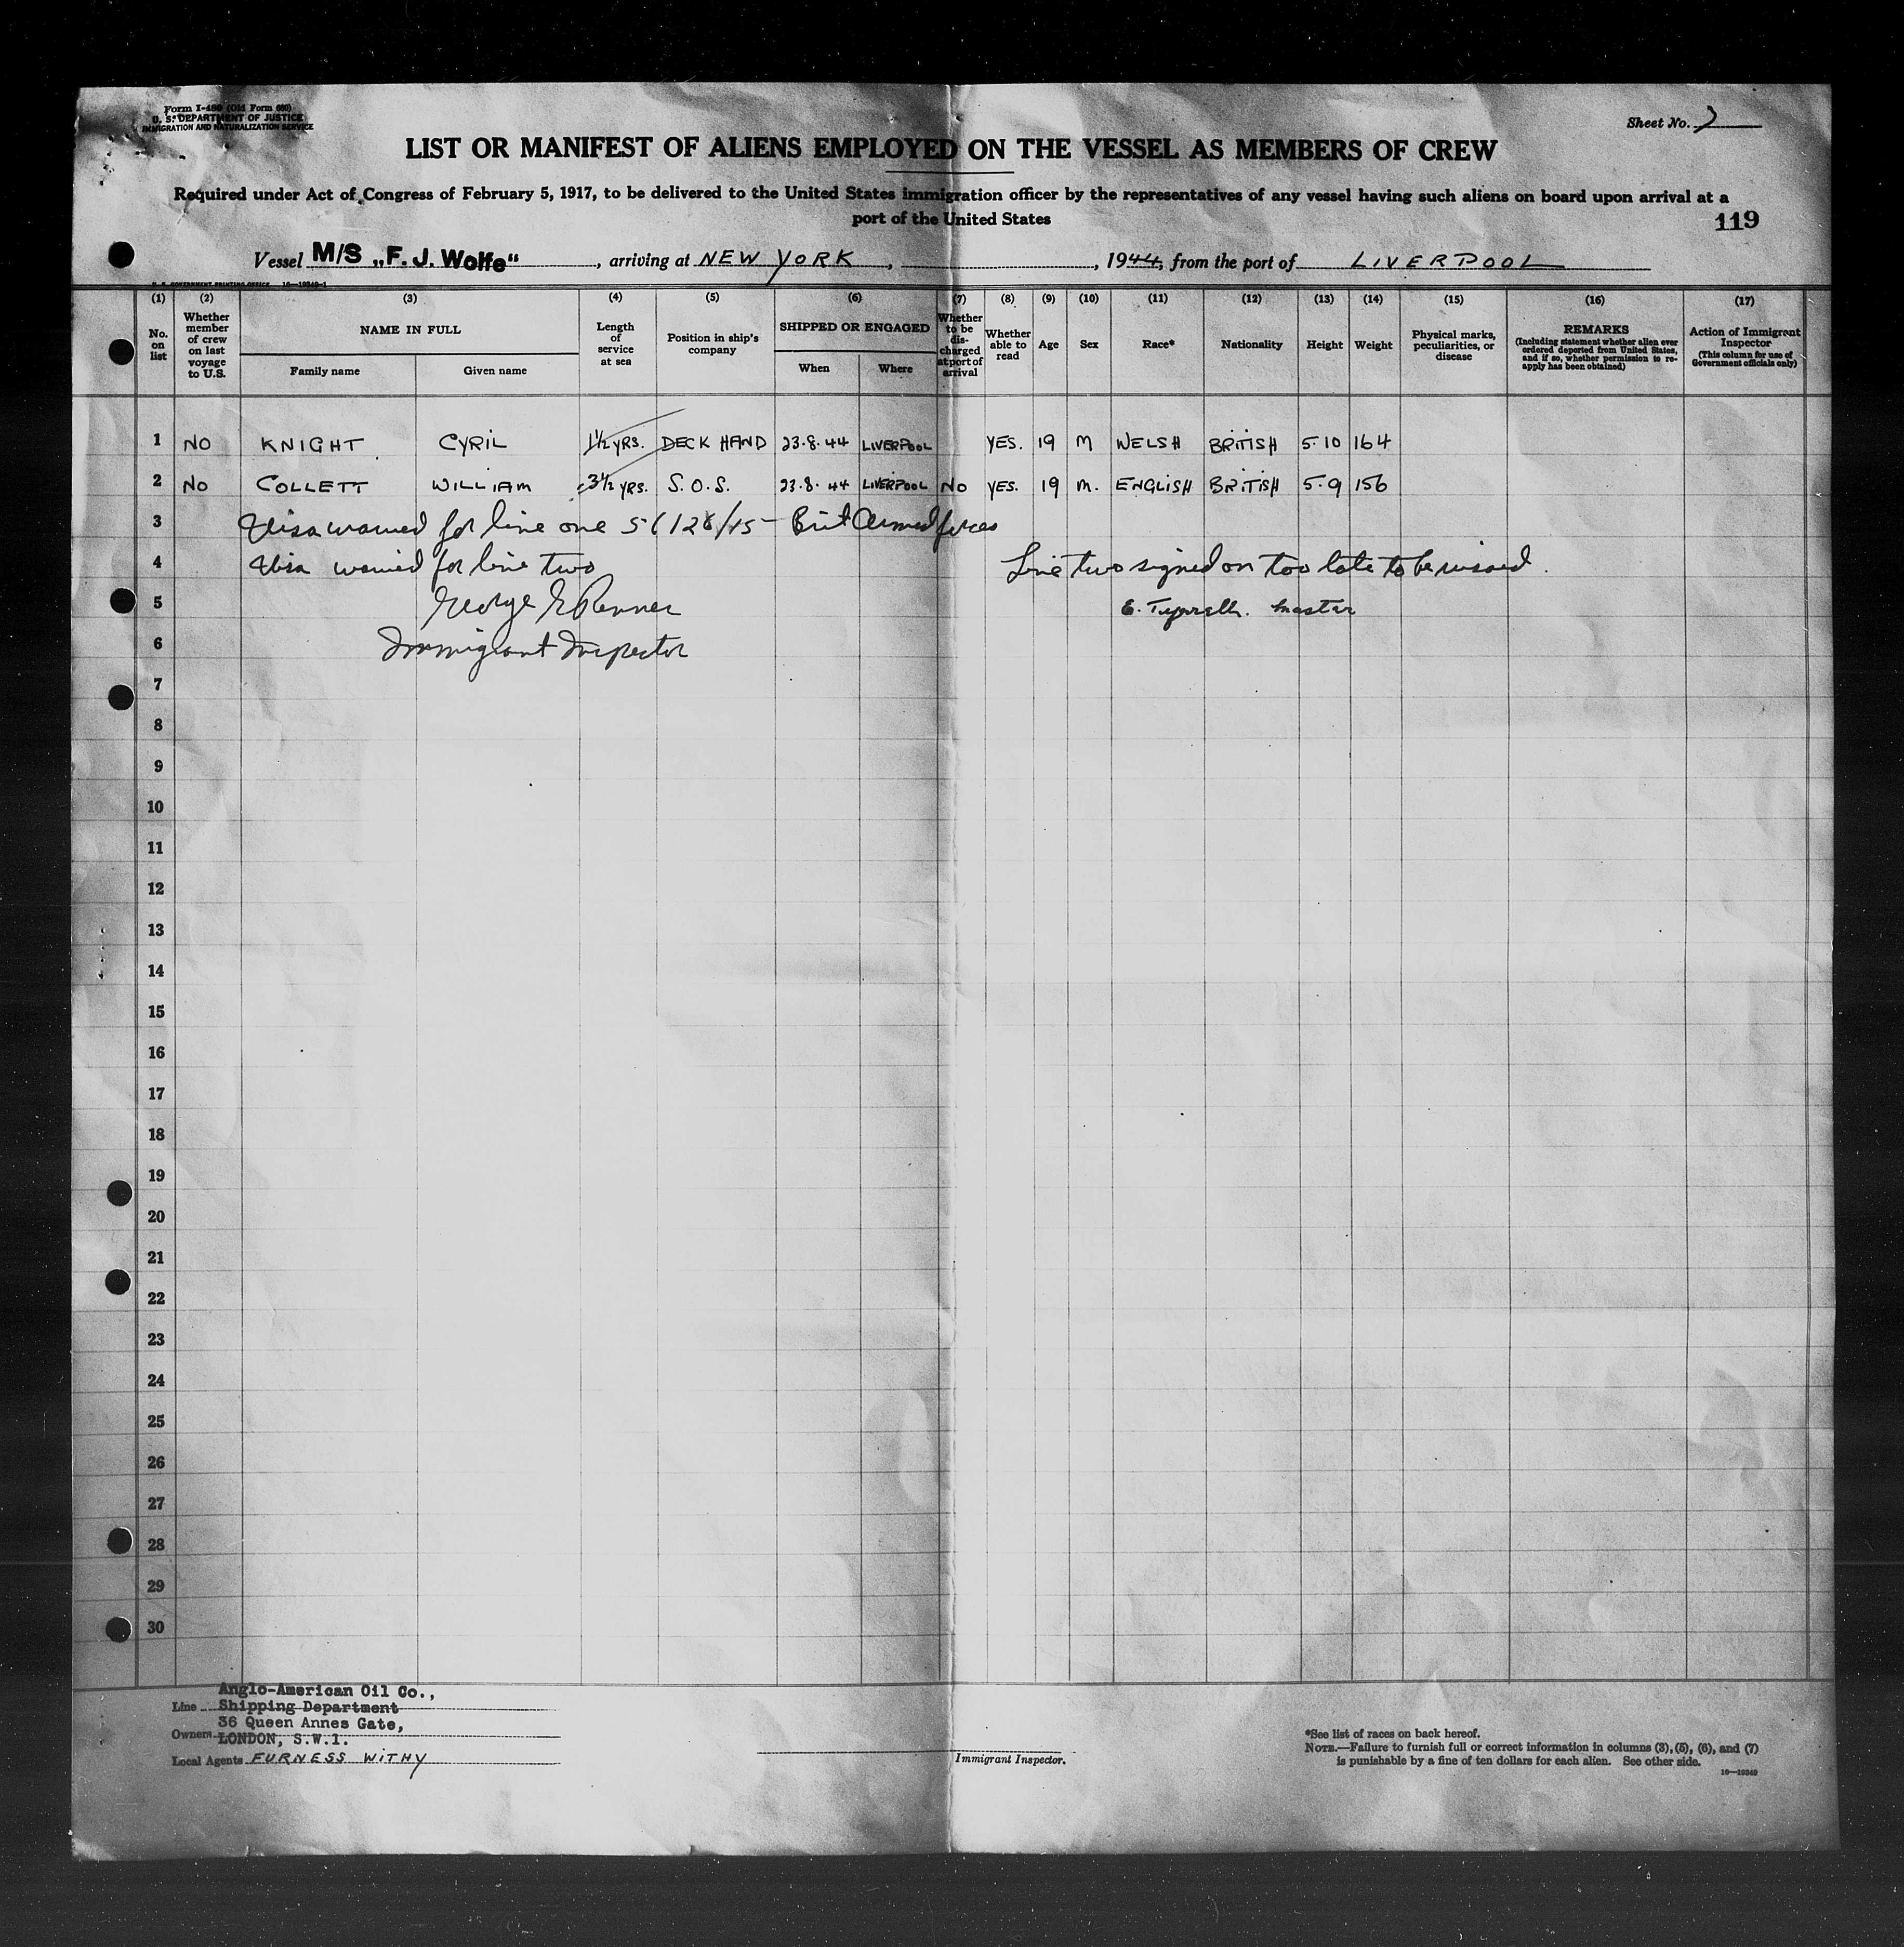 Form I-480 (Old Form 680)
U. S. DEPARTMENT OF JUSTICE
IMMIGRATION AND NATURALIZATION SERVICE
Sheet No.
LIST OR MANIFEST OF ALIENS EMPLOYED ON THE VESSEL AS MEMBERS OF CREW
Required under Act of Congress of February 5, 1917, to be delivered to the United States immigration officer by the representatives of any vessel having such aliens on board upon arrival at a
port of the United States
119
Vessel M/S „F. J. Wolfe“, arriving at NEW YORK, , 1944, from the port of LIVERPOOL
U. S. GOVERNMENT PRINTING OFFICE 16—19349-1
(1) (2) (3) (4) (5) (6) (7) (8) (9) (10) (11) (12) (13) (14) (15) (16) (17)
No. on list
Whether member of crew on last voyage to U.S.
NAME IN FULL
Family name
Given name
Length of service at sea
Position in ship's company
SHIPPED OR ENGAGED
When
Where
Whether to be discharged at port of arrival
Whether able to read
Age
Sex
Race*
Nationality
Height
Weight
Physical marks, peculiarities, or disease
REMARKS
(Including statement whether alien ever ordered deported from United States, and if so, whether permission to reapply has been obtained)
Action of Immigrant Inspector
(This column for use of Government officials only)
1 NO KNIGHT CYRIL 1½ YRS. DECK HAND 23.8.44 LIVERPOOL YES. 19 M WELSH BRITISH 5.10 164
2 NO COLLETT WILLIAM 3½ YRS. S.O.S. 23.8.44 LIVERPOOL NO YES. 19 M. ENGLISH BRITISH 5.9 156
3 Visa waived for line one Brit Armed forces
4 Visa waived for line two Line two signed on too late to be visaed.
5 George E Renner Master
6 Immigrant Inspector
7
8
9
10
11
12
13
14
15
16
17
18
19
20
21
22
23
24
25
26
27
28
29
30
Anglo-American Oil Co.,
Line Shipping Department
36 Queen Annes Gate,
Owners LONDON, S.W.1.
Local Agents FURNESS WITHY
Immigrant Inspector.
*See list of races on back hereof.
NOTE.—Failure to furnish full or correct information in columns (3), (5), (6), and (7)
is punishable by a fine of ten dollars for each alien. See other side.
16—19349